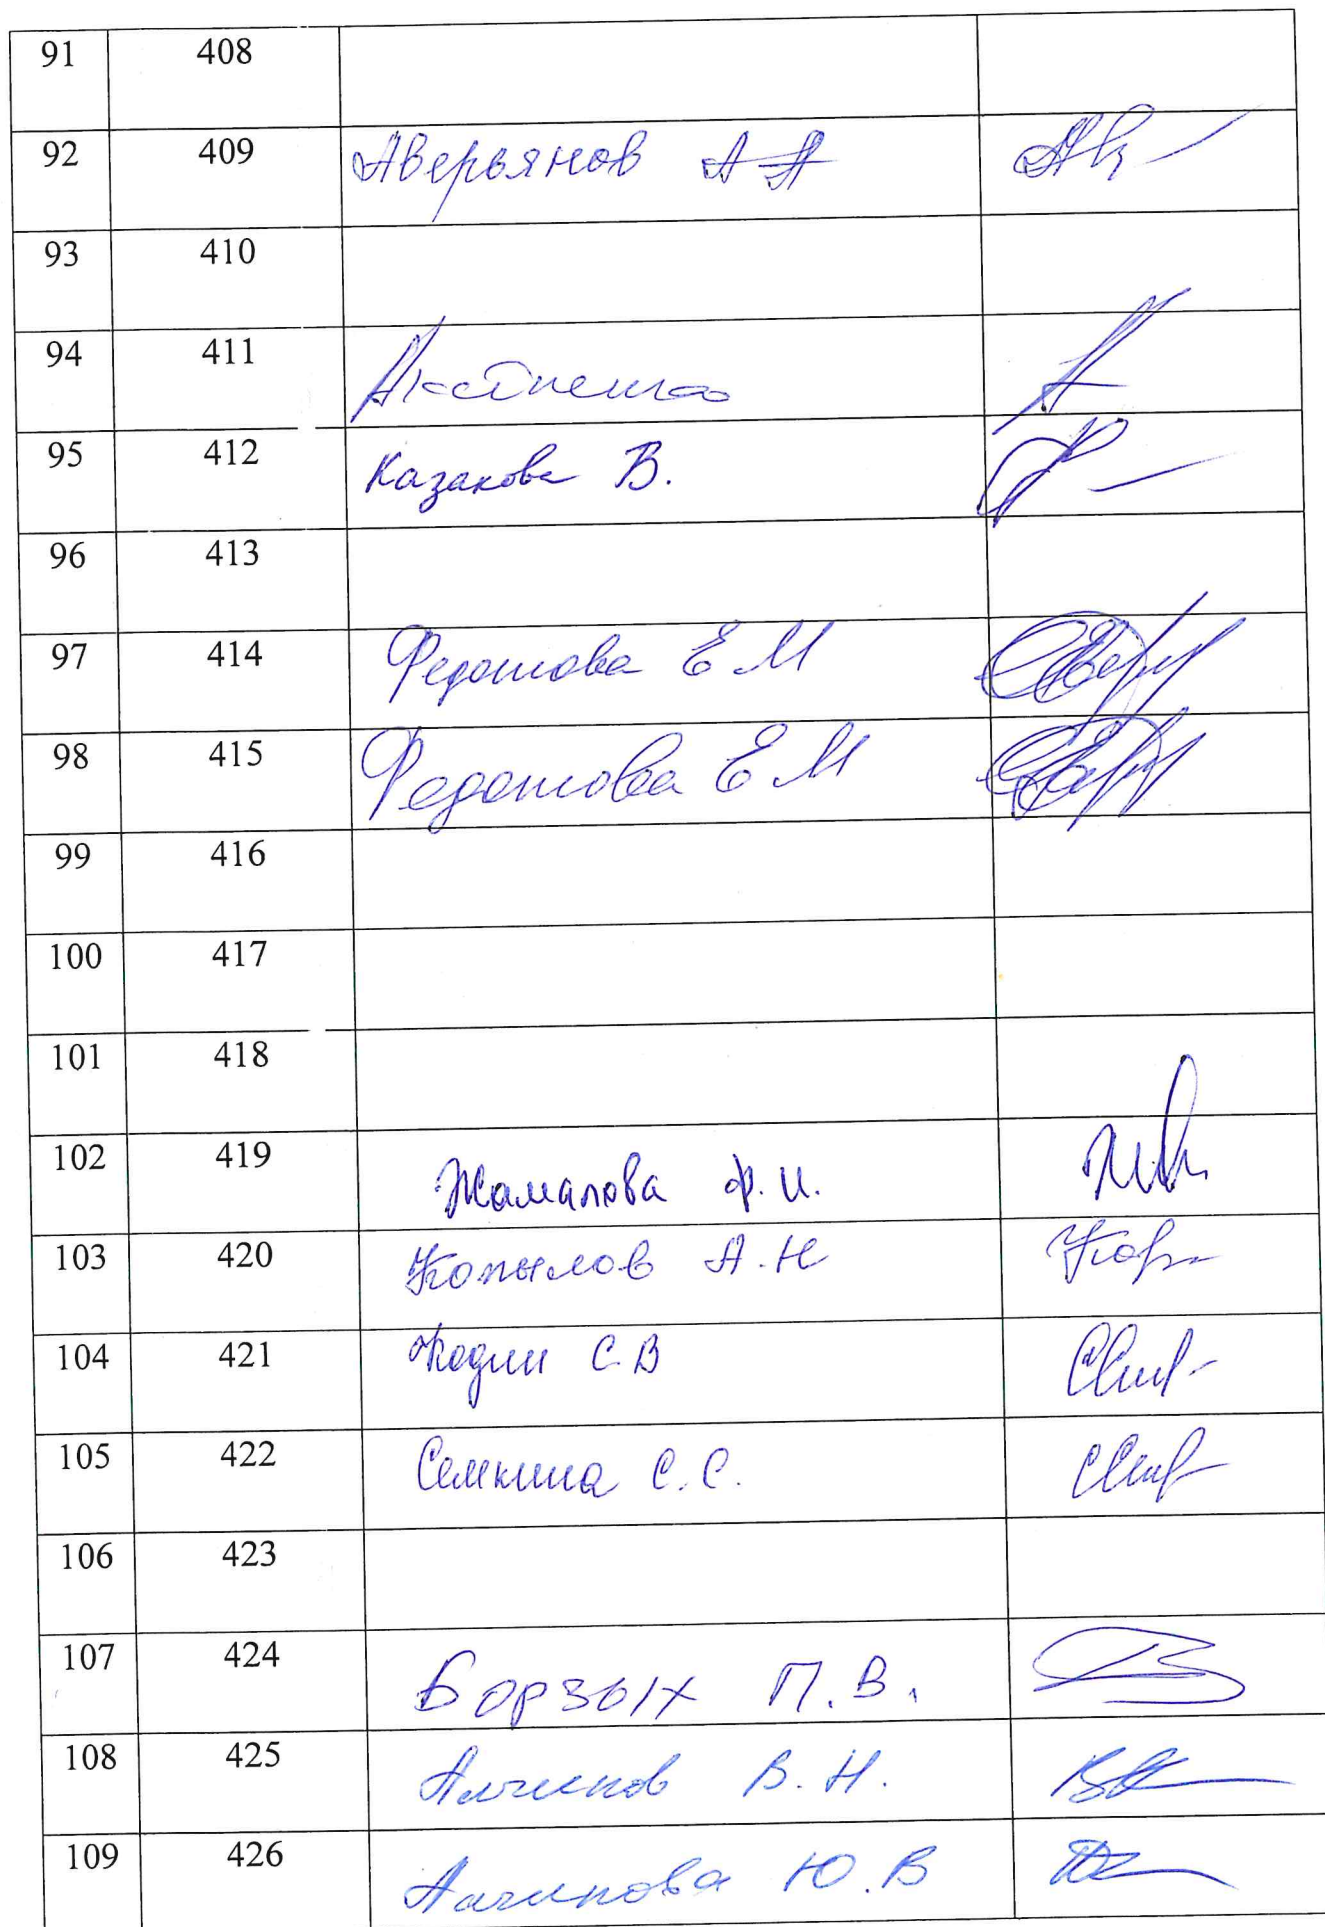 91 408
92 409 Аверьянов А А
93 410
94 411
95 412 Казакова В.
96 413
97 414 Федотова Е М
98 415 Федотова Е М
99 416
100 417
101 418
102 419 Жамалова Ф. И.
103 420 Копылов А. Н
104 421 Кодин С. В
105 422 Семкина С. С.
106 423
107 424 Борзых П. В.
108 425 В. Н.
109 426 Ю. В